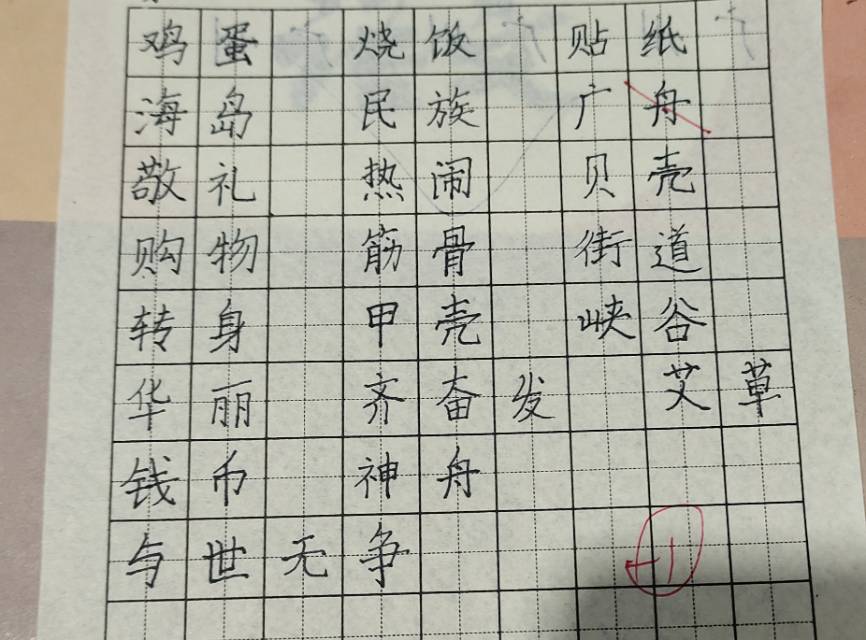 鸡蛋 烧饭 贴纸
海岛 民族 广舟
敬礼 热闹 贝壳
购物 筋骨 街道
转身 甲壳 峡谷
华丽 齐奋发 艾草
钱币 神舟
与世无争
-1